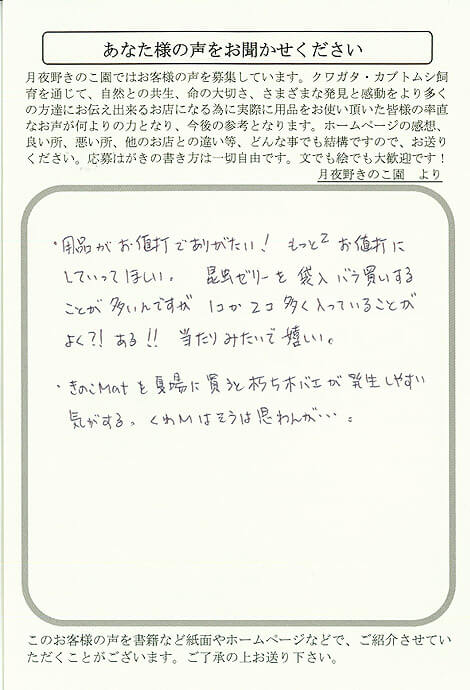 あなた様の声をお聞かせください
月夜野きのこ園ではお客様の声を募集しています。クワガタ・カブトムシ飼
育を通じて、自然との共生、命の大切さ、さまざまな発見と感動をより多く
の方達にお伝え出来るお店になる為に実際に用品をお使い頂いた皆様の率直
なお声が何よりの力となり、今後の参考となります。ホームページの感想、
良い所、悪い所、他のお店との違い等、どんな事でも結構ですので、お送り
ください。応募はがきの書き方は一切自由です。文でも絵でも大歓迎です！
月夜野きのこ園　より
・用品がお値打でありがたい！ もっと2お値打に
していってほしい。 昆虫ゼリーを袋入バラ買いする
ことが多いんですが 1コか2コ多く入っていることが
よく?!ある!! 当たりみたいで嬉しい。
・きのこMatを夏場に買うと朽ち木バエが発生しやすい
気がする。くわMはそうは思わんが…。
このお客様の声を書籍など紙面やホームページなどで、ご紹介させてい
ただくことがございます。ご了承の上お送り下さい。